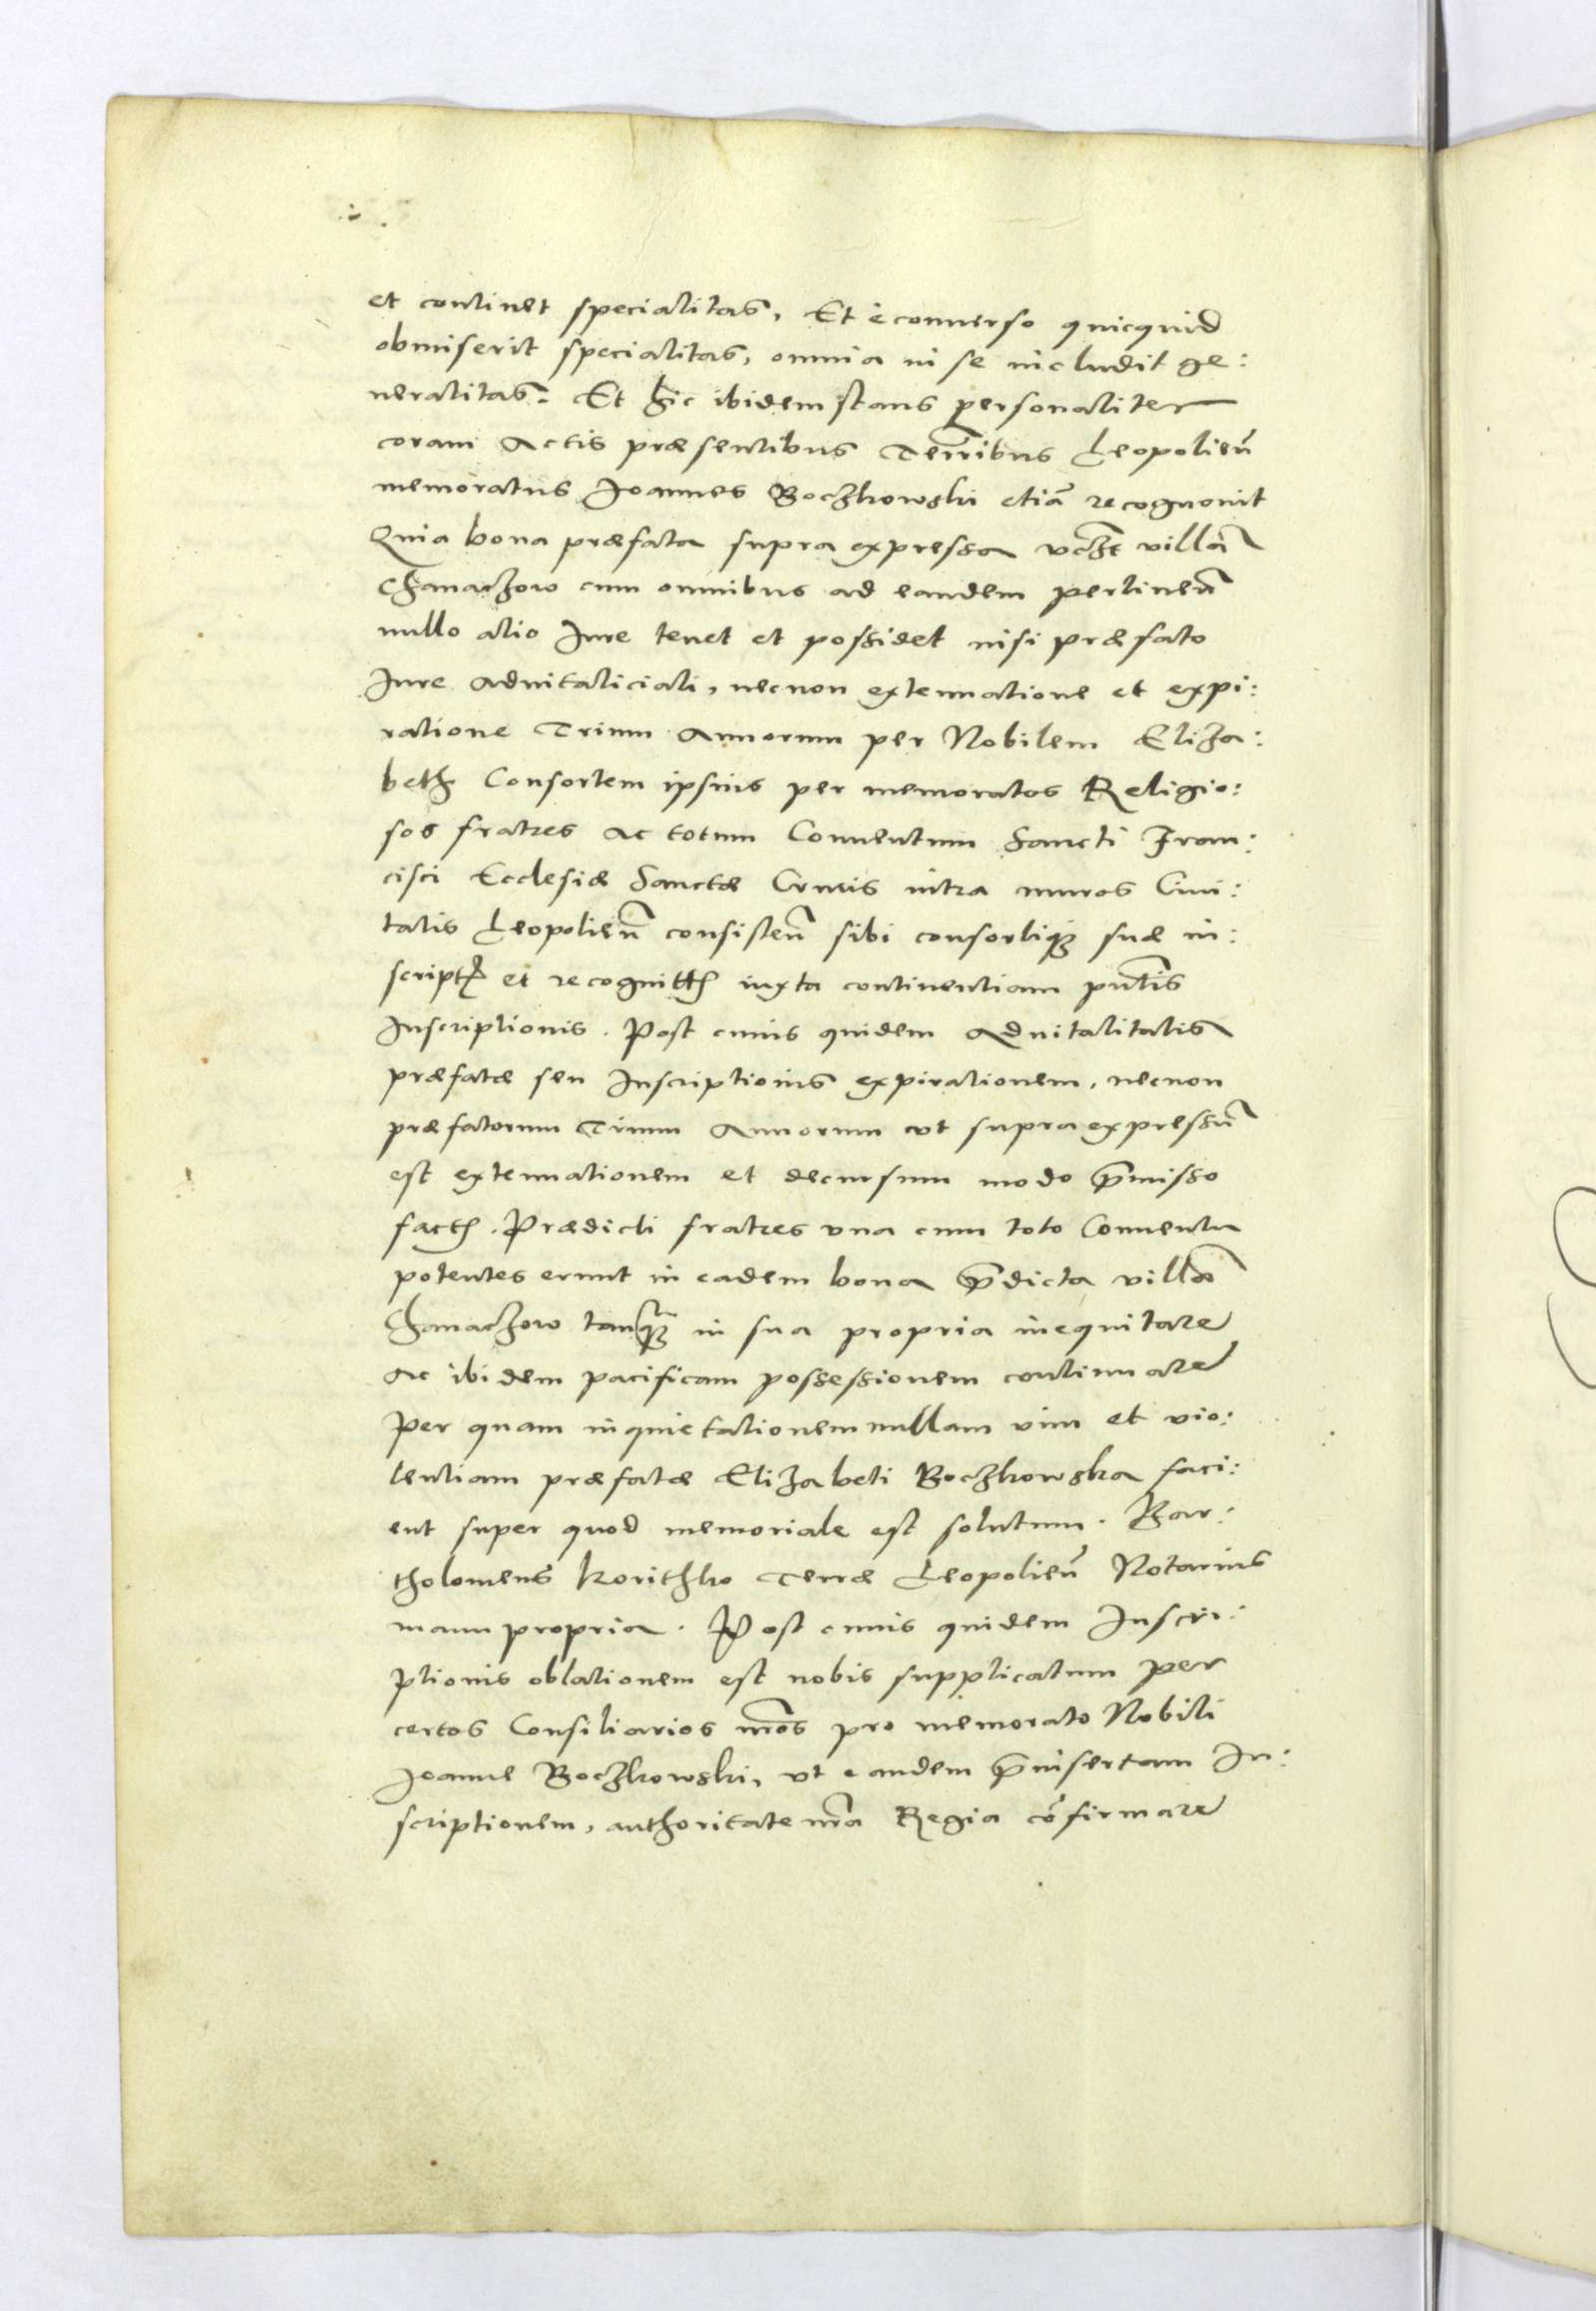 et continet specialitas, Et ècomuerso quicquid
obmiserit specialitas, omnia in se includit ge:
neralitas. Et hic ibidem stans personaliter
coram Actis præsentibus Terribus Leopolien̄
memoratus Joannes Boczkowski etiā recognouit
Quia bona præfata supra expressa vczt villā
Chanaczow cum omnibus ad eandem pertinen̄
nullo alio Iure tenet et possidet nisi præfato
Iure aduitaliciali, necnon extenuatione et expi:
ratione Trium Annorum per Nobilem Eliza:
beth Consortem ipsius per memoratos Religio:
sos fratres ac totum Conuentum Sancti Fran:
cisci Ecclesiæ Sanctæ Crucis intra muros Ciui:
tatis Leopolien̄ consisten̄ sibi consortiqꝫ suæ in:
script et recognitt iuxta continentiam pn̄tis
Inscriptionis. Post cuius quidem Aduitalitatis
præfatæ seu Inscriptionis expirationem, necnon
præfatorum Trium Annorum vt supra expressū
est extenuationem et decursum modo p̄misso
fact. Prædicti fratres vna cum toto Conuentu
potentes erunt in eadem bona p̄dicta villā
Chanaczow tanqꝫ in sua propria inequitare
ac ibidem pacificam possessionem continuare
Per quam inquietationem nullam vim et vio:
lentiam præfatæ Elizabeti Boczkowska faci:
ent super quod memoriale est solutum. Bar:
tholomeus Korithko Terræ Leopolien̄ Notarius
manu propria. Post cuius quidem Inscri:
ptionis oblationem est nobis supplicatum per
certos Consiliarios nr̄os pro memorato Nobili
Joanne Boczkowski, vt eandem p̄insertam In:
scriptionem, authoritate nr̄a Regia cōfirmare